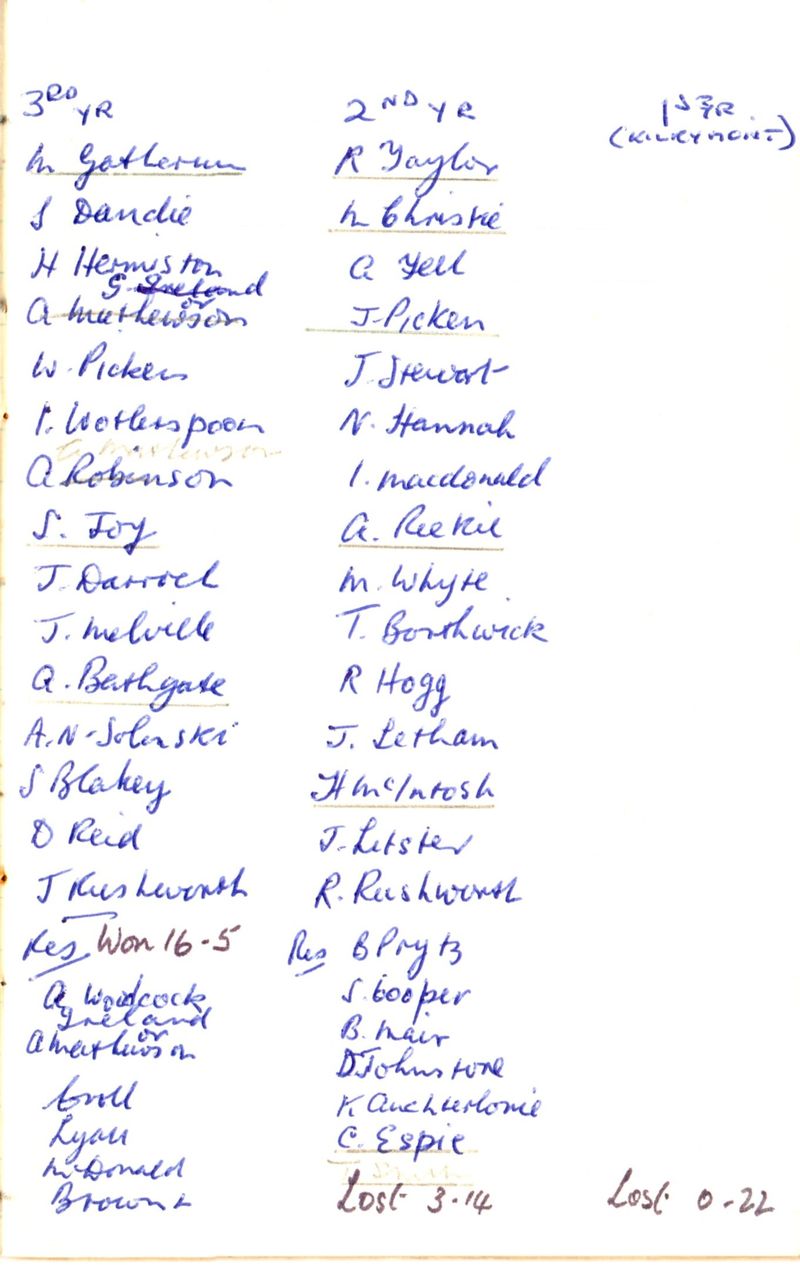 3RD YR
M Gatherum
S Dandie
H Hermiston
G Ireland
or
A Mathewson
W. Picken
P. Wotherspoon
A Mathewson
A Robinson
S. Joy
J. Darroch
J. Melville
A. Bathgate
A.N-Solinski
S Blakey
D Reid
J Rushworth
Res Won 16-5
A Woodcock
Ireland
or
A Mathewson
Croll
Lyall
McDonald
Brown
2ND YR
R Taylor
M Christie
A Fell
J. Picken
J. Stewart
N. Hannah
I. Macdonald
A. Reekie
M. Whyte
T. Borthwick
R Hogg
J. Letham
H McIntosh
J. Litster
R. Rushworth
Res B Prytz
S. Cooper
B. Mair
D Johnstone
K Auchterlonie
C. Espie
Lost 3-14
1ST YR
(KILRYMONT)
Lost 0-22